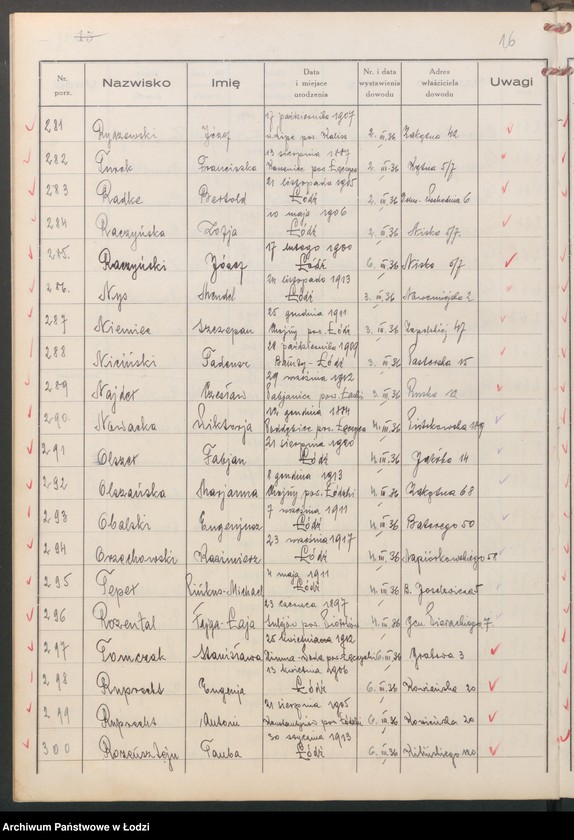 15
16
Nr. porz. Nazwisko Imię Data i miejsce urodzenia Nr. i data wystawienia dowodu Adres właściciela dowodu Uwagi
17 października 1907
281 Ryszewski Józef pow. Kalisz 2. III. 36 Zakątna 42
13 sierpnia 1887
282 Turek Franciszka pow. Łęczyca 2. III. 36 Kątna 5/7
21 listopada 1905
283 Radke Bertold Łódź 2. III. 36 6
10 maja 1906
284 Raczyńska Zofja Łódź 2. III. 36 Nisko 5/7
17 lutego 1900
285. Raczyński Józef Łódź 6. III. 36 Nisko 5/7
24 listopada 1913
286. Nys Mendel Łódź 3. III. 36 Nowomiejska 2
25 grudnia 1911
287 Niemiec Szczepan Chojny pow. Łódź 3. III. 36 47
28 października 1909
288 Niciński Tadeusz Bałuty-Łódź 3. III. 36 Pastorska 15
29 września 1912
289 Najder Czesław Pabjanice pow. Łaski 3. III. 36 Ruska 12
12 grudnia 1884
290. Nowacka Wiktorja Poddębice pow. Łęczyca 4. III. 36 Piotrkowska
21 sierpnia 1920
291 Olszer Fabjan Łódź 4. III. 36 14
8 grudnia 1913
292 Olszańska Marjanna Chojny pow. Łódzki 4. III. 36 Zakątna 68
7 września 1911
293 Obalski Eugenjusz Łódź 4. III. 36 Batorego 50
23 września 1917
294 Orzechowski Kazimierz Łódź 4. III. 36 Napiórkowskiego
4 maja 1911
295 Teper Pinkus-Michael Łódź 4. III. 36 B. Joselewicza 5
23 czerwca 1897
296 Rozental Fajga-Łaja Sulejów pow. Piotrków 4. III. 36 Gen. Pierackiego 7
25 kwietnia 1912
297 Tomczak Stanisława Zimna-Woda pow. Łęczycki 6. III. 36 Grabowa 3
13 kwietnia 1906
298 Rupprecht Eugenja Łódź 6. III. 36 20
21 sierpnia 1905
299 Rupprecht Antoni Konstantynów pow. Łódzki 6. III. 36 20
30 stycznia 1913
300 Rozensztajn Tauba Łódź 6. III. 36 Kilińskiego
Archiwum Państwowe w Łodzi